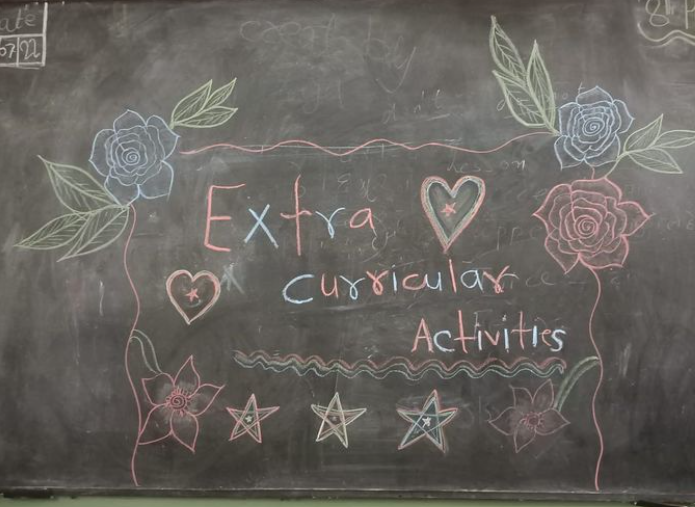 ate
07 22
Extra
Curricular
Activities